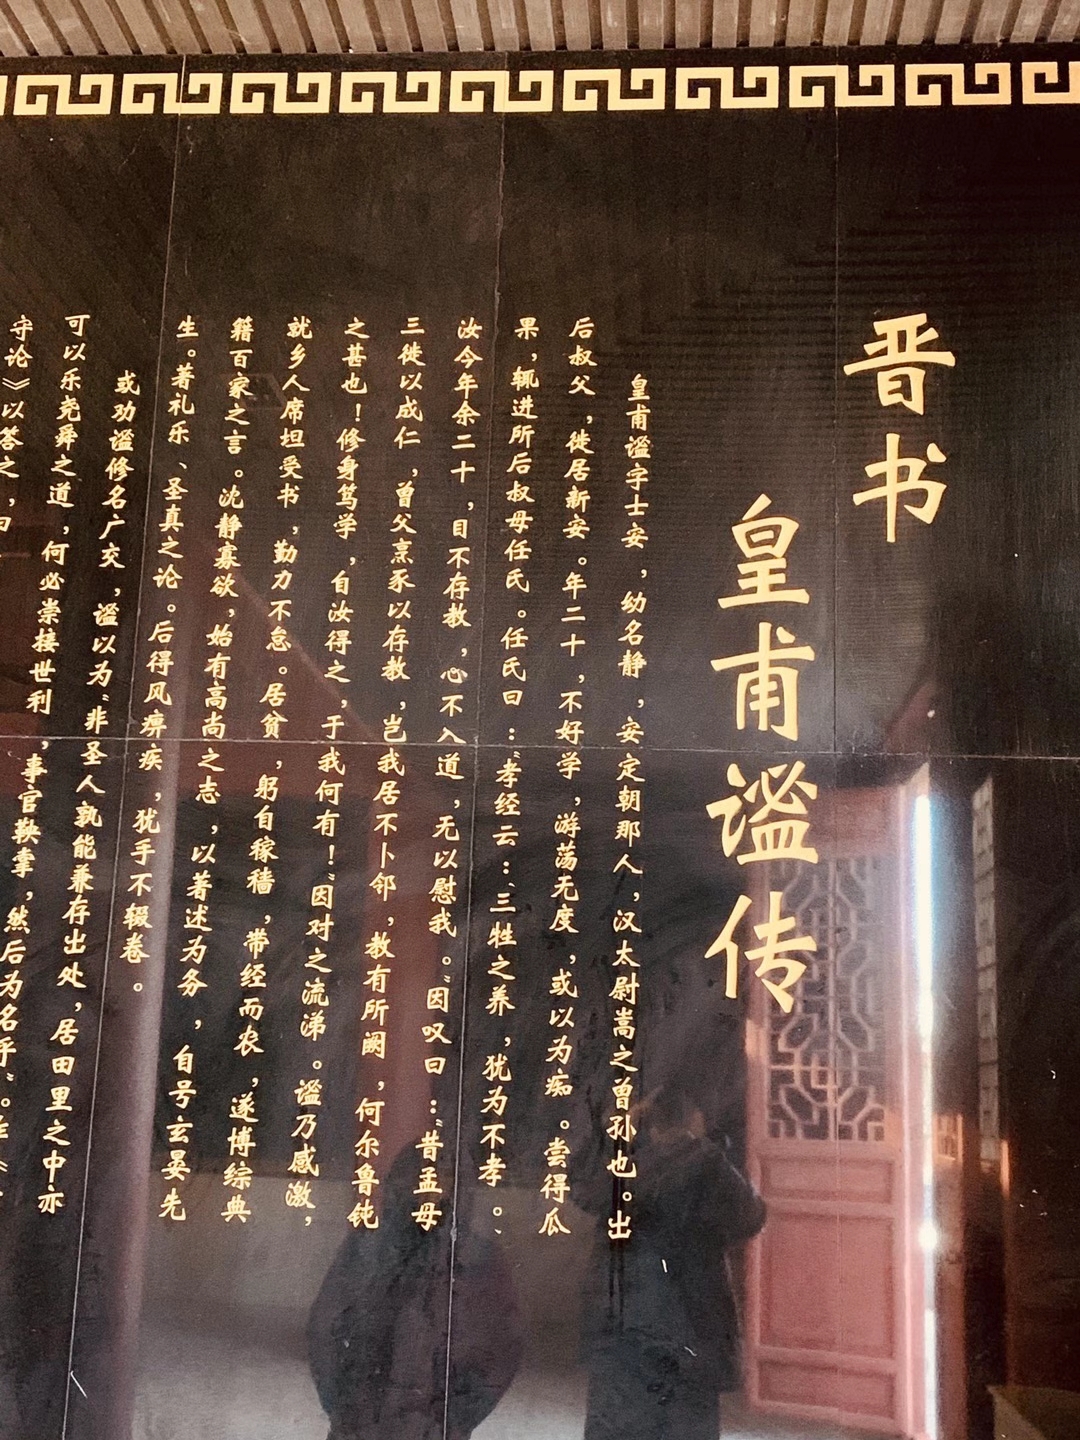 晋书
皇甫谧传
皇甫谧字士安，幼名静，安定朝那人，汉太尉嵩之曾孙也。出
后叔父，徙居新安。年二十，不好学，游荡无度，或以为痴。尝得瓜
果，辄进所后叔母任氏。任氏曰：“孝经云：‘三牲之养，犹为不孝。’
汝今年余二十，目不存教，心不入道，无以慰我。”因叹曰：“昔孟母
三徙以成仁，曾父烹豕以存教，岂我居不卜邻，教有所阙，何尔鲁钝
之甚也！修身笃学，自汝得之，于我何有！”因对之流涕。谧乃感激，
就乡人席坦受书，勤力不怠。居贫，躬自稼穑，带经而农，遂博综典
籍百家之言。沈静寡欲，始有高尚之志，以著述为务，自号玄晏先
生。著礼乐、圣真之论。后得风痹疾，犹手不辍卷。
或劝谧修名广交，谧以为“非圣人孰能兼存出处，居田里之中亦
可以乐尧舜之道，何必崇接世利，事官鞅掌，然后为名乎”。作《
守论》以答之，曰